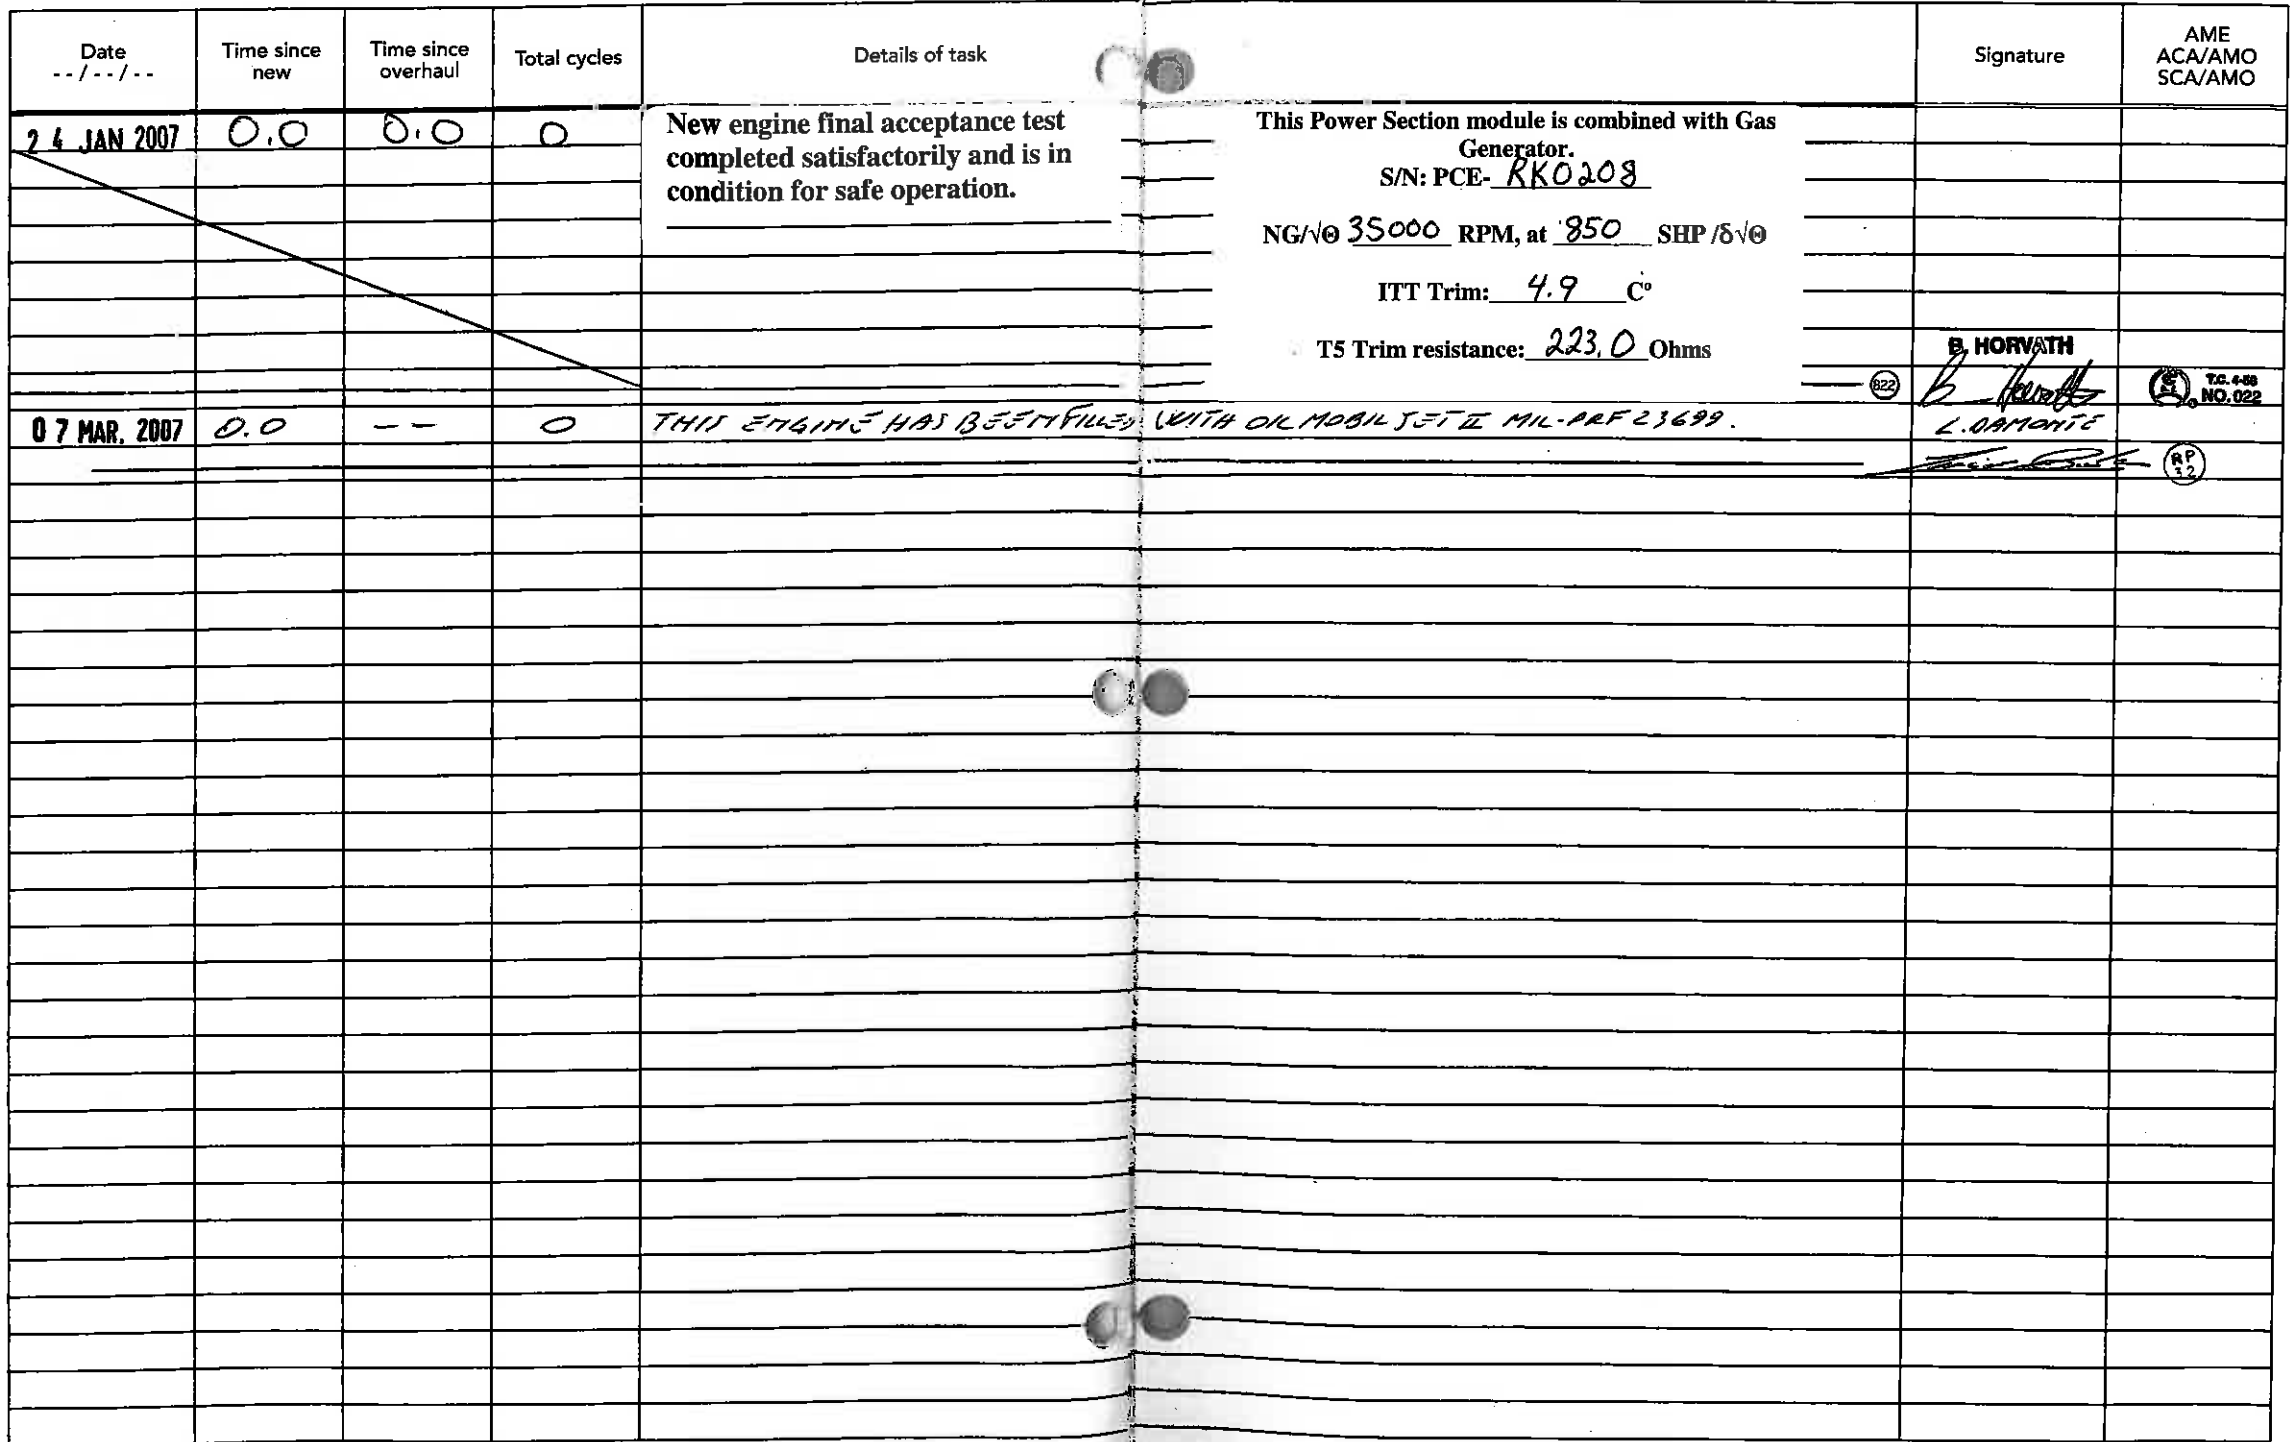 Date
--/--/--
Time since
new
Time since
overhaul
Total cycles
Details of task
Signature
AME
ACA/AMO
SCA/AMO
24 JAN 2007 0.0 0.0 0
New engine final acceptance test
completed satisfactorily and is in
condition for safe operation.
This Power Section module is combined with Gas
Generator.
S/N: PCE- RK0208
NG/√Θ 35000 RPM, at 850 SHP /δ√Θ
ITT Trim: 4.9 C°
T5 Trim resistance: 223.0 Ohms
B. HORVATH
822
B Horvath
T.C. 4-58
NO. 022
07 MAR. 2007 0.0 -- 0 THIS ENGINE HAS BEEN FILLED WITH OIL MOBIL JET II MIL-PRF 23699. L. DAMONTE
RP
32